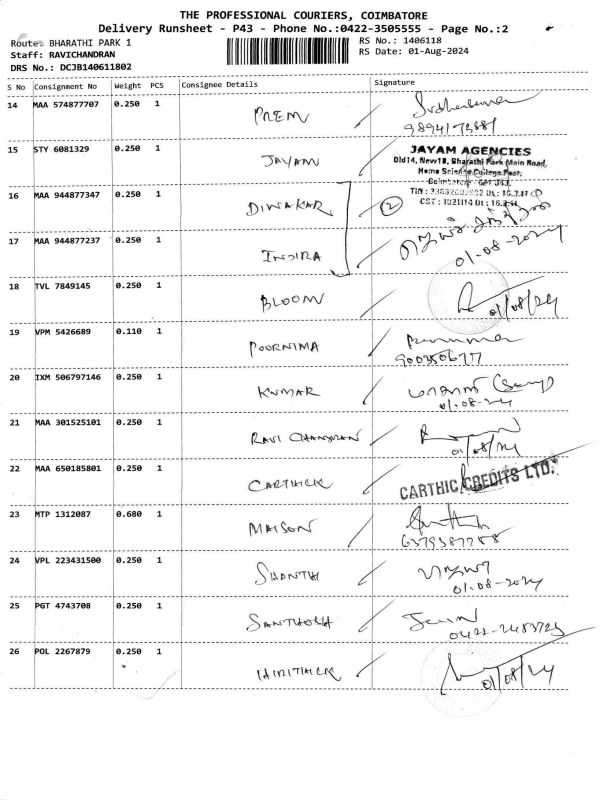 THE PROFESSIONAL COURIERS, COIMBATORE
Delivery Runsheet - P43 - Phone No.:0422-3505555 - Page No.:2
Route: BHARATHI PARK 1
RS No.: 1406118
Staff: RAVICHANDRAN
RS Date: 01-Aug-2024
DRS No.: DCJB140611802
S No Consignment No Weight PCS Consignee Details Signature
14 MAA 574877707 0.250 1 PREM
15 STY 6081329 0.250 1 JAYAM JAYAM AGENCIES
Old14, New18, Bharathi Park Main Road,
Home Science College Post,
16 MAA 944877347 0.250 1 DIWAKAR 2
17 MAA 944877237 0.250 1 INDIRA 01-08-2024
18 TVL 7849145 0.250 1 BLOOM 01/08/24
19 VPM 5426689 0.110 1 POORNIMA
20 IXM 506797146 0.250 1 KUMAR
01-08-24
21 MAA 301525101 0.250 1 RAVI CHANDRAN
01/08/24
22 MAA 650185801 0.250 1 CARTHICK CARTHIC CREDITS LTD.
23 MTP 1312087 0.680 1 MAISON
6379387288
24 VPL 223431500 0.250 1 SHANTHI
01-08-2024
25 PGT 4743708 0.250 1 SANTHOSH
26 POL 2267879 0.250 1 HIRITHICK
01/08/24